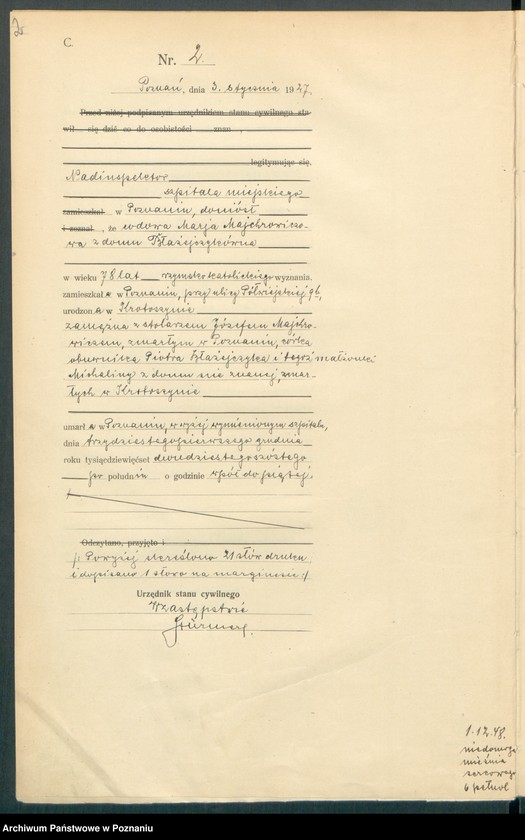 2.
C.
Nr. 2.
Poznań, dnia 3. stycznia 1927.
Przed niżej podpisanym urzędnikiem stanu cywilnego sta-
wił się dziś co do osobistości znan ,
legitymując się.
Nadinspektor
szpitala miejskiego
zamieszkał w Poznaniu, doniósł
i zeznał , że wdowa Marja Majchrowiczo-
wa z domu Błażejczykówna
w wieku 78 lat rzymskokatolickiego wyznania,
zamieszkała w Poznaniu, przy ulicy Półwiejskiej 9b,
urodzona w Krotoszynie
zamężna z stolarzem Józefem Majchro-
wiczem, zmarłym w Poznaniu, córka
obuwnika Piotra Błażejczyka i tegoż małżonki
Michaliny z domu nie znanej, zmar-
łych w Krotoszynie
umarła w Poznaniu, w wyżej wymienionym szpitalu,
dnia trzydziestegopierwszego grudnia
roku tysiącdziewięćset dwudziestegoszóstego
po południu o godzinie wpół do piątej.
Odczytano, przyjęto i
/: Powyżej skreślono 21 słów druku
i dopisano 1 słowo na marginesie :/
Urzędnik stanu cywilnego
W zastępstwie
1.12.48.
niedomoga
mięśnia
sercowego
Archiwum Państwowe w Poznaniu